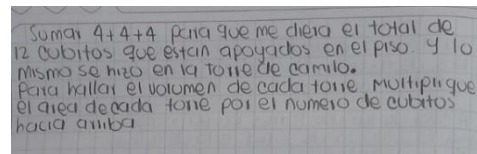 Sumar 4+4+4 para que me diera el total de
12 cubitos que estan apoyados en el piso. y lo
mismo se hizo en la Torre de camilo.
Para hallar el volumen de cada torre multiplique
el area de cada torre por el numero de cubitos
hacia arriba